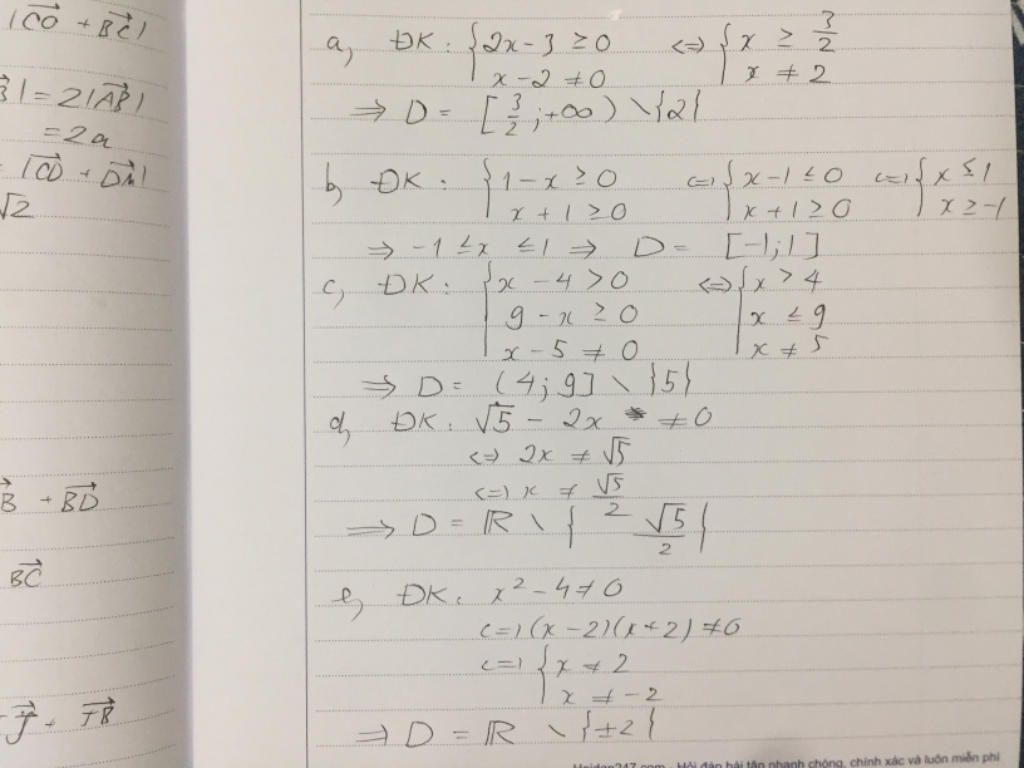 |CO + BC|
| = 2|AB|
= 2a
= |CD + DM|
√2
B + BD
BC
+ JB
a, ĐK: { 2x - 3 ≥ 0 <=> { x ≥ 3/2
x - 2 ≠ 0 x ≠ 2
=> D = [3/2; +∞) \ {2}
b, ĐK: { 1 - x ≥ 0 <=> { x - 1 ≤ 0 <=> { x ≤ 1
x + 1 ≥ 0 x + 1 ≥ 0 x ≥ -1
=> -1 ≤ x ≤ 1 => D = [-1; 1]
c, ĐK: { x - 4 > 0 <=> { x > 4
9 - x ≥ 0 x ≤ 9
x - 5 ≠ 0 x ≠ 5
=> D = (4; 9] \ {5}
d, ĐK: √5 - 2x ≠ 0
<=> 2x ≠ √5
<=> x ≠ √5/2
=> D = ℝ \ { √5/2 }
e, ĐK: x² - 4 ≠ 0
<=> (x - 2)(x + 2) ≠ 0
<=> { x ≠ 2
x ≠ -2
=> D = ℝ \ {±2}
Hoidap247.com - Hỏi đáp bài tập nhanh chóng, chính xác và luôn miễn phí